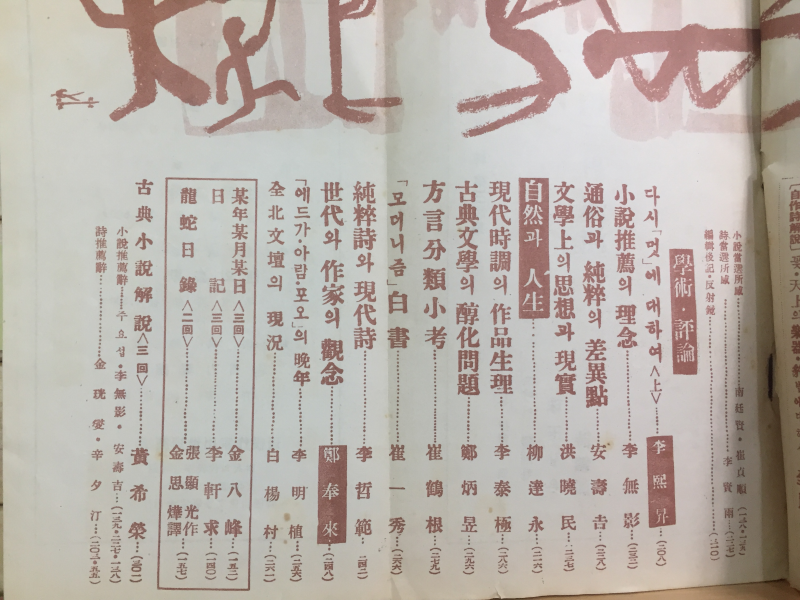 小說當選所感……南廷賢・崔貞順
詩當選所感……李實雨
編輯後記・反射鏡
學術・評論
다시「멋」에 대하여〈上〉……李熙昇…(一〇八)
小說推薦의 理念……李無影
通俗과 純粹의 差異點……安壽吉
文學上의 思想과 現實……洪曉民
自然과 人生……柳達永
現代時調의 作品生理……李泰極
古典文學의 醇化問題……鄭炳昱
方言分類小考……崔鶴根…(二七九)
「모더니즘」白書……崔一秀…(二六六)
純粹詩와 現代詩……李哲範…(二四二)
世代와 作家의 觀念……鄭奉來…(二四八)
「에드가・아람・포오」의 晩年……李明植…(二五六)
全北文壇의 現況……白楊村
某年某月某日〈三回〉……金八峰…(一五二)
日記〈三回〉……李軒求…(一四〇)
龍蛇日錄〈二回〉……張顯光作 金思燁譯…(一五七)
古典小說解說〈三回〉……黃希榮
小說推薦辭……주요섭・李無影・安壽吉
詩推薦辭……金珖燮・辛夕汀